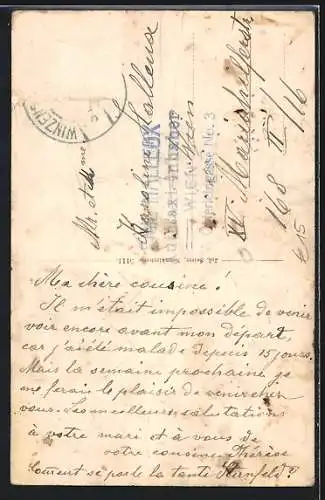 WINZEN
Mr. et Mme
Karoline Kallena
Wien
XV Mariahilferstr
168 II/16
€15
Autotaxi-Inhaber
WIEN
gasse No. 3
Ma chère cousine!
Il m'était impossible de venir
voir encore avant mon départ,
car j'ai été malade depuis 15 jours.
Mais la semaine prochaine je
me ferais le plaisir de venir chez
vous. Les meilleures salutations
à votre mari et à vous de
votre cousine Thérèse
Comment se porte la tante Kernfeld?